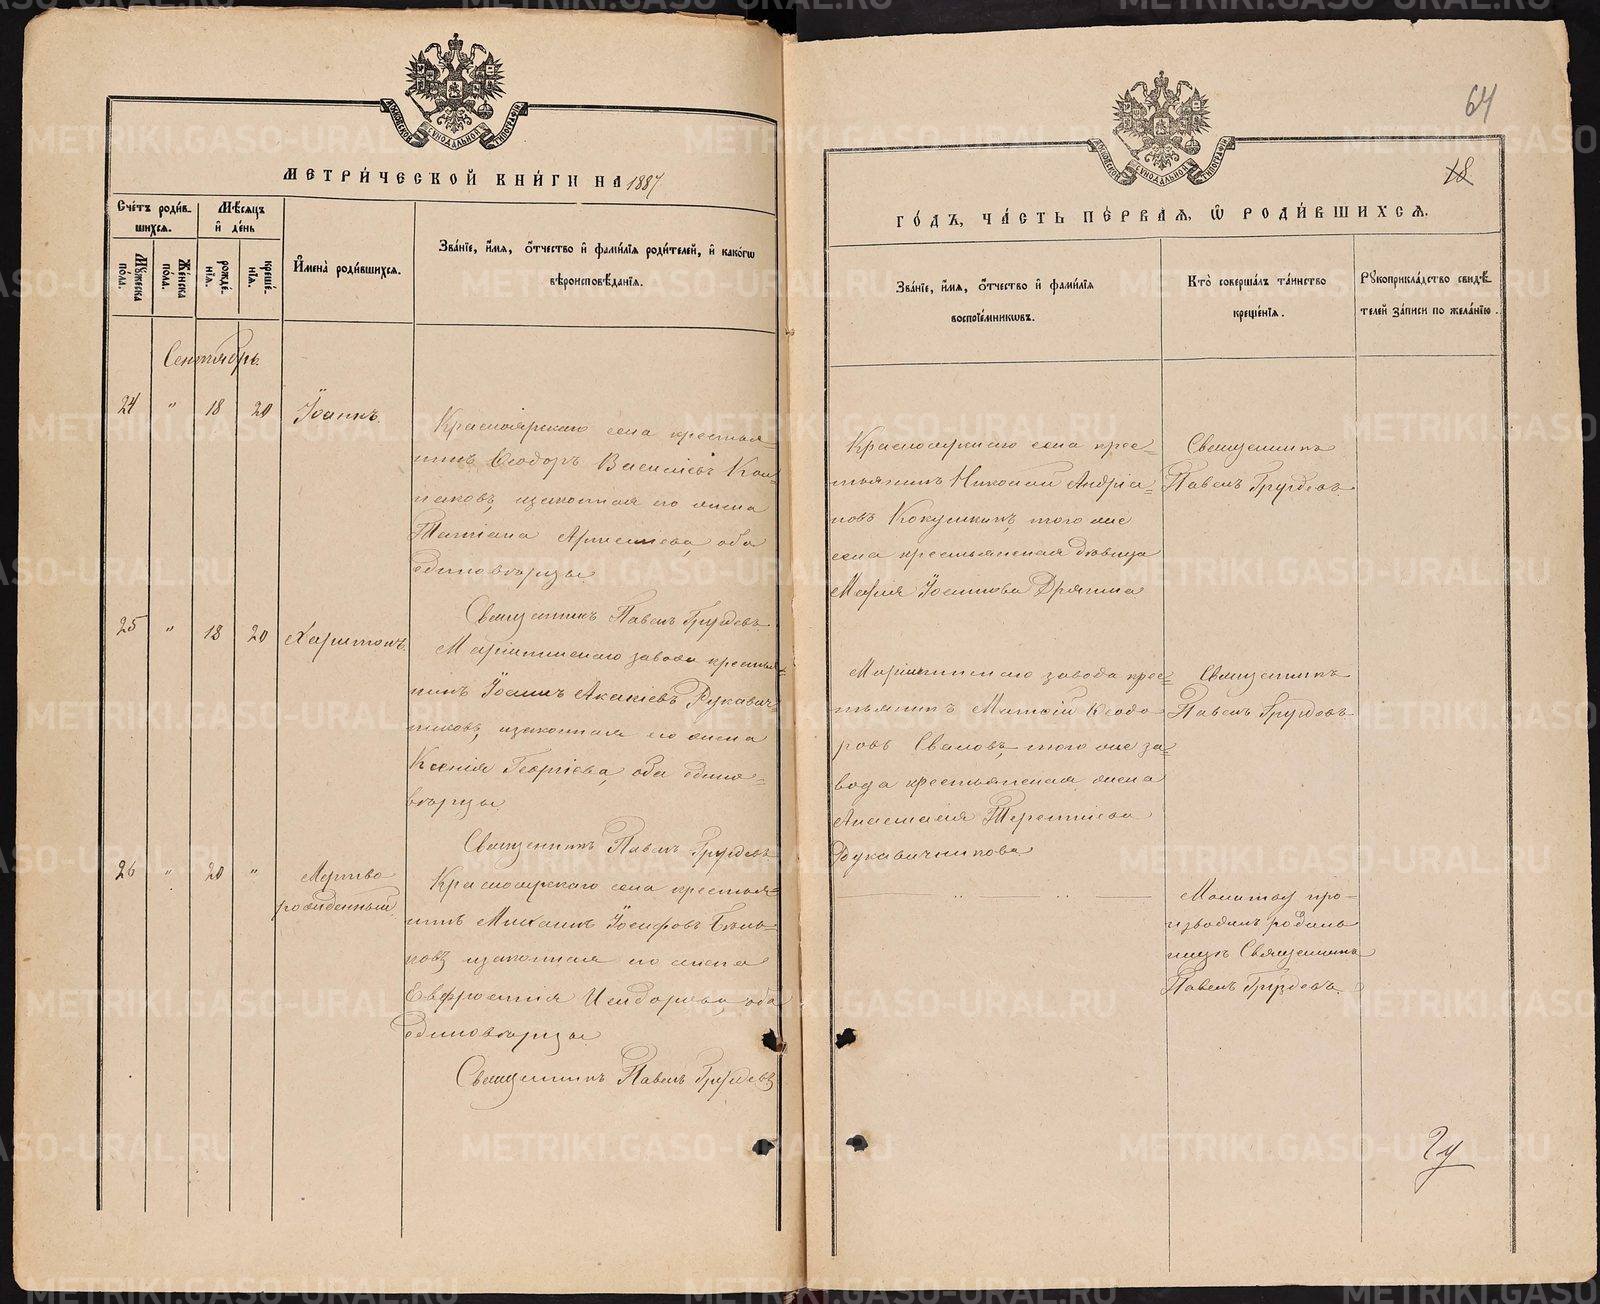 МЕТРИЧЕСКОЙ КНИГИ НА 1887
Счетъ родив-
шихся.
Мужеска
пола.
Женска
пола.
Мѣсяцъ
и день
рожде-
нія.
креще-
нія.
Имена родившихся.
Званіе, имя, отчество и фамилія родителей, и какогѡ
вѣроисповѣданія.
Сентябрь
24 " 18 20 Іоаннъ.
Красноярскаго села крестья-
нинъ Ѳеодоръ Василіевъ Кол-
паковъ, и законная его жена
Татіана, оба
единовѣрцы
Священникъ Павелъ Груздевъ
25 " 18 20 Харитонъ.
Маріинскаго завода крестья-
нинъ Іоаннъ Акакіевъ Рукавич-
никовъ, и законная его жена
Ксенія Георгіева, оба едино-
вѣрцы
Священникъ Павелъ Груздевъ
26 " 20 " Мертво
рожденный
Красноярскаго села крестья-
нинъ Михаилъ Іосифовъ Бѣль-
ковъ и законная его жена
Евфросинія Исидорова, оба
единовѣрцы
Священникъ Павелъ Груздевъ
64
18
ГОДЪ, ЧАСТЬ ПЕРВАЯ, Ѡ РОДИВШИХСЯ.
Званіе, имя, отчество и фамилія
воспріемникѡвъ.
Кто совершалъ таинство
крещенія.
Рукоприкладство свидѣ-
телей записи по желанію.
Красноярскаго села крес-
тьянинъ Николай Андріа-
новъ Кокушкинъ, того же
села крестьянская дѣвица
Марія Іоаннова Дрягина
Священникъ
Павелъ Груздевъ
Маріинскаго завода крес-
тьянинъ Матѳій Ѳеодо-
ровъ Сваловъ, того же за-
вода крестьянская жена
Анастасія Терентіева
Рукавичникова
Священникъ
Павелъ Груздевъ
Молитву про-
изводилъ родиль-
ницѣ Священникъ
Павелъ Груздевъ.
METRIKI.GASO-URAL.RU